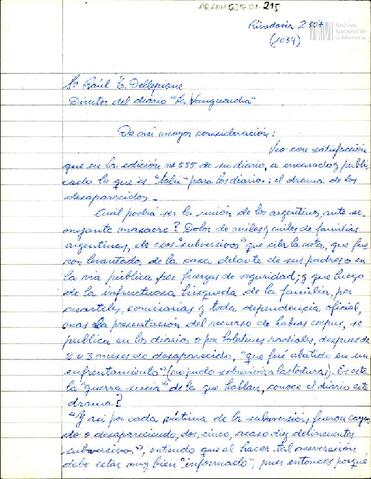 215
Archivo
Nacional de
la Memoria
Rivadavia
(1034)
Sr Raúl E. Dellepiane
Director del diario "La Vanguardia"
De mi mayor consideración:
Veo con satisfacción
que en la edición nº 555 de su diario, a encarado y publi
cado lo que es "tabú" para los diarios: el drama de los
desaparecidos.
Cuál podrá ser la unión de los argentinos, ante se
mejante masacre? Dolor de miles y miles de familias
argentinas, de esos "subversivos" que cita la nota, que fue
ron levantados de la casa delante de sus padres o en
la vía pública por fuerzas de seguridad; y que luego
de la infructuosa búsqueda de la familia, por
cuarteles, comisarías y toda dependencia oficial,
mas la presentación del recurso de habeas corpus, se
publica en los diarios o por boletines radiales, después de
2 o 3 meses de desaparecido, "que fué abatido en un
enfrentamiento" (no pudo sobrevivir a las torturas). Es esta
la "guerra sucia" de la que hablan, conoce el diario este
drama?
"Y así por cada víctima de la subversión, fueron cayen
do o desapareciendo, dos, cinco, acaso diez delincuentes
subversivos", entiendo que al hacer tal aseveración
debe estar muy bien "informado", pues entonces porqué